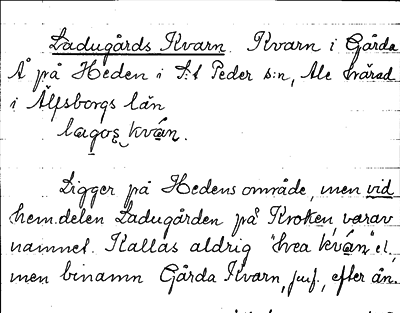 Ladugårds Kvarn. Kvarn i Gårda
Å på Heden i S:t Peder s:n, Ale härad
i Älfsborgs län
lagoʂ kván.
Ligger på Hedens område, men vid
hem.delen Ladugården på Kroken, varav
namnet. Kallas aldrig "hea kván" el.
men binamn Gårda Kvarn, juf., efter ån.